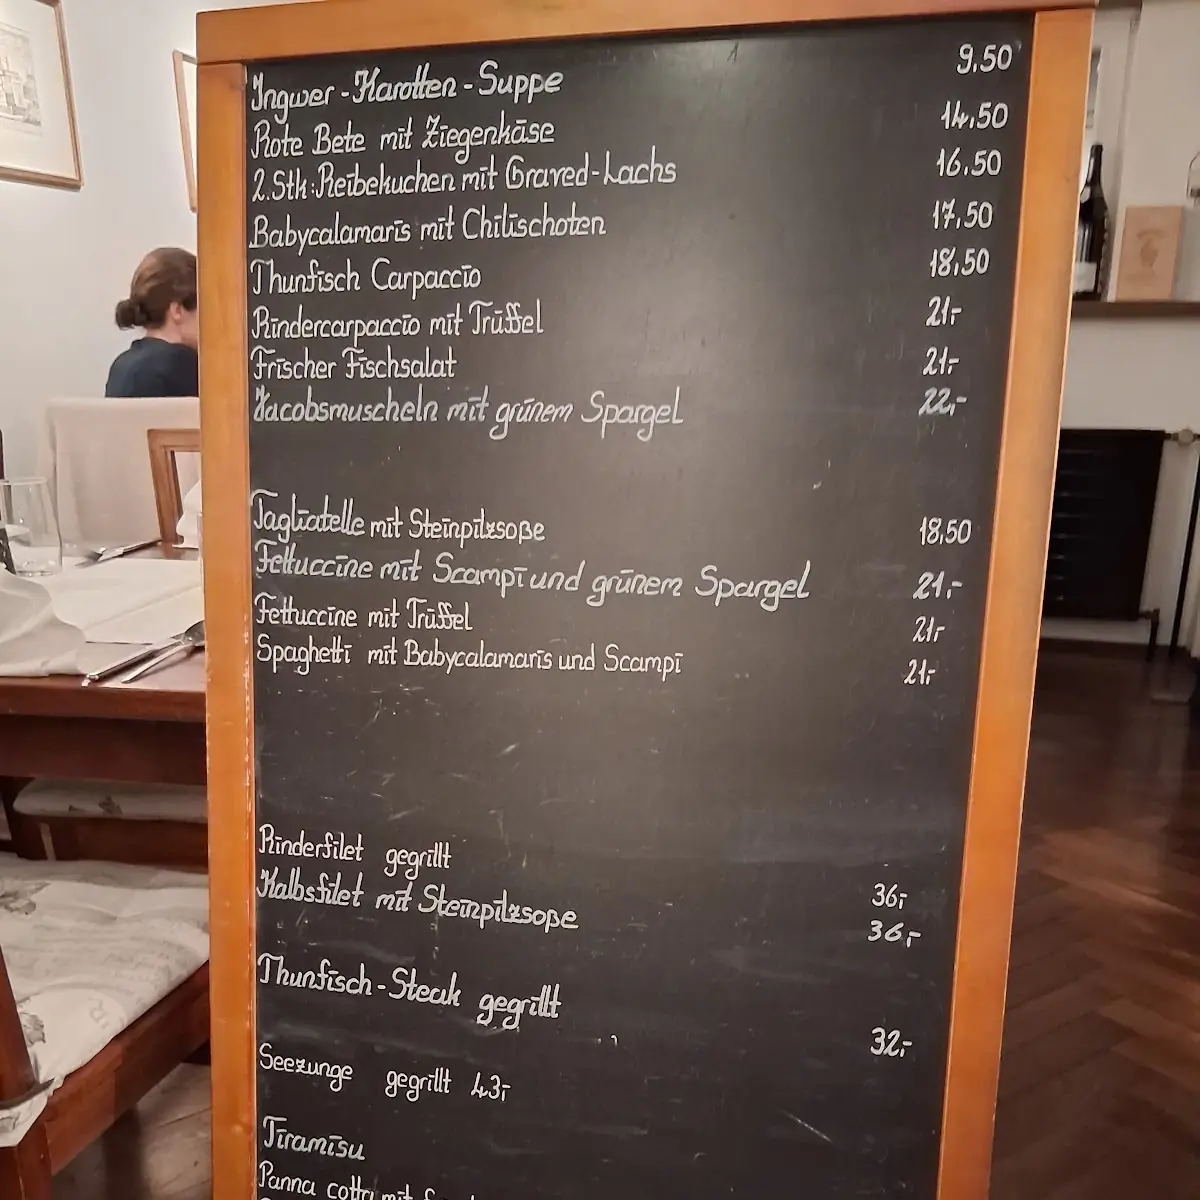 Ingwer-Karotten-Suppe 9.50
Rote Bete mit Ziegenkäse 14,50
2.Stk.:Reibekuchen mit Graved-Lachs 16,50
Babycalamaris mit Chilischoten 17,50
Thunfisch Carpaccio 18,50
Rindercarpaccio mit Trüffel 21,-
Frischer Fischsalat 21,-
Jacobsmuscheln mit grünem Spargel 22,-
Tagliatelle mit Steinpilzsoße 18,50
Fettuccine mit Scampi und grünem Spargel 21,-
Fettuccine mit Trüffel 21,-
Spaghetti mit Babycalamaris und Scampi 21,-
Rinderfilet gegrillt 36,-
Kalbsfilet mit Steinpilzsoße 36,-
Thunfisch-Steak gegrillt 32,-
Seezunge gegrillt 43,-
Tiramisu
Panna cotta mit